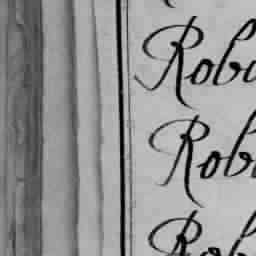 Rob
Rob
Rob